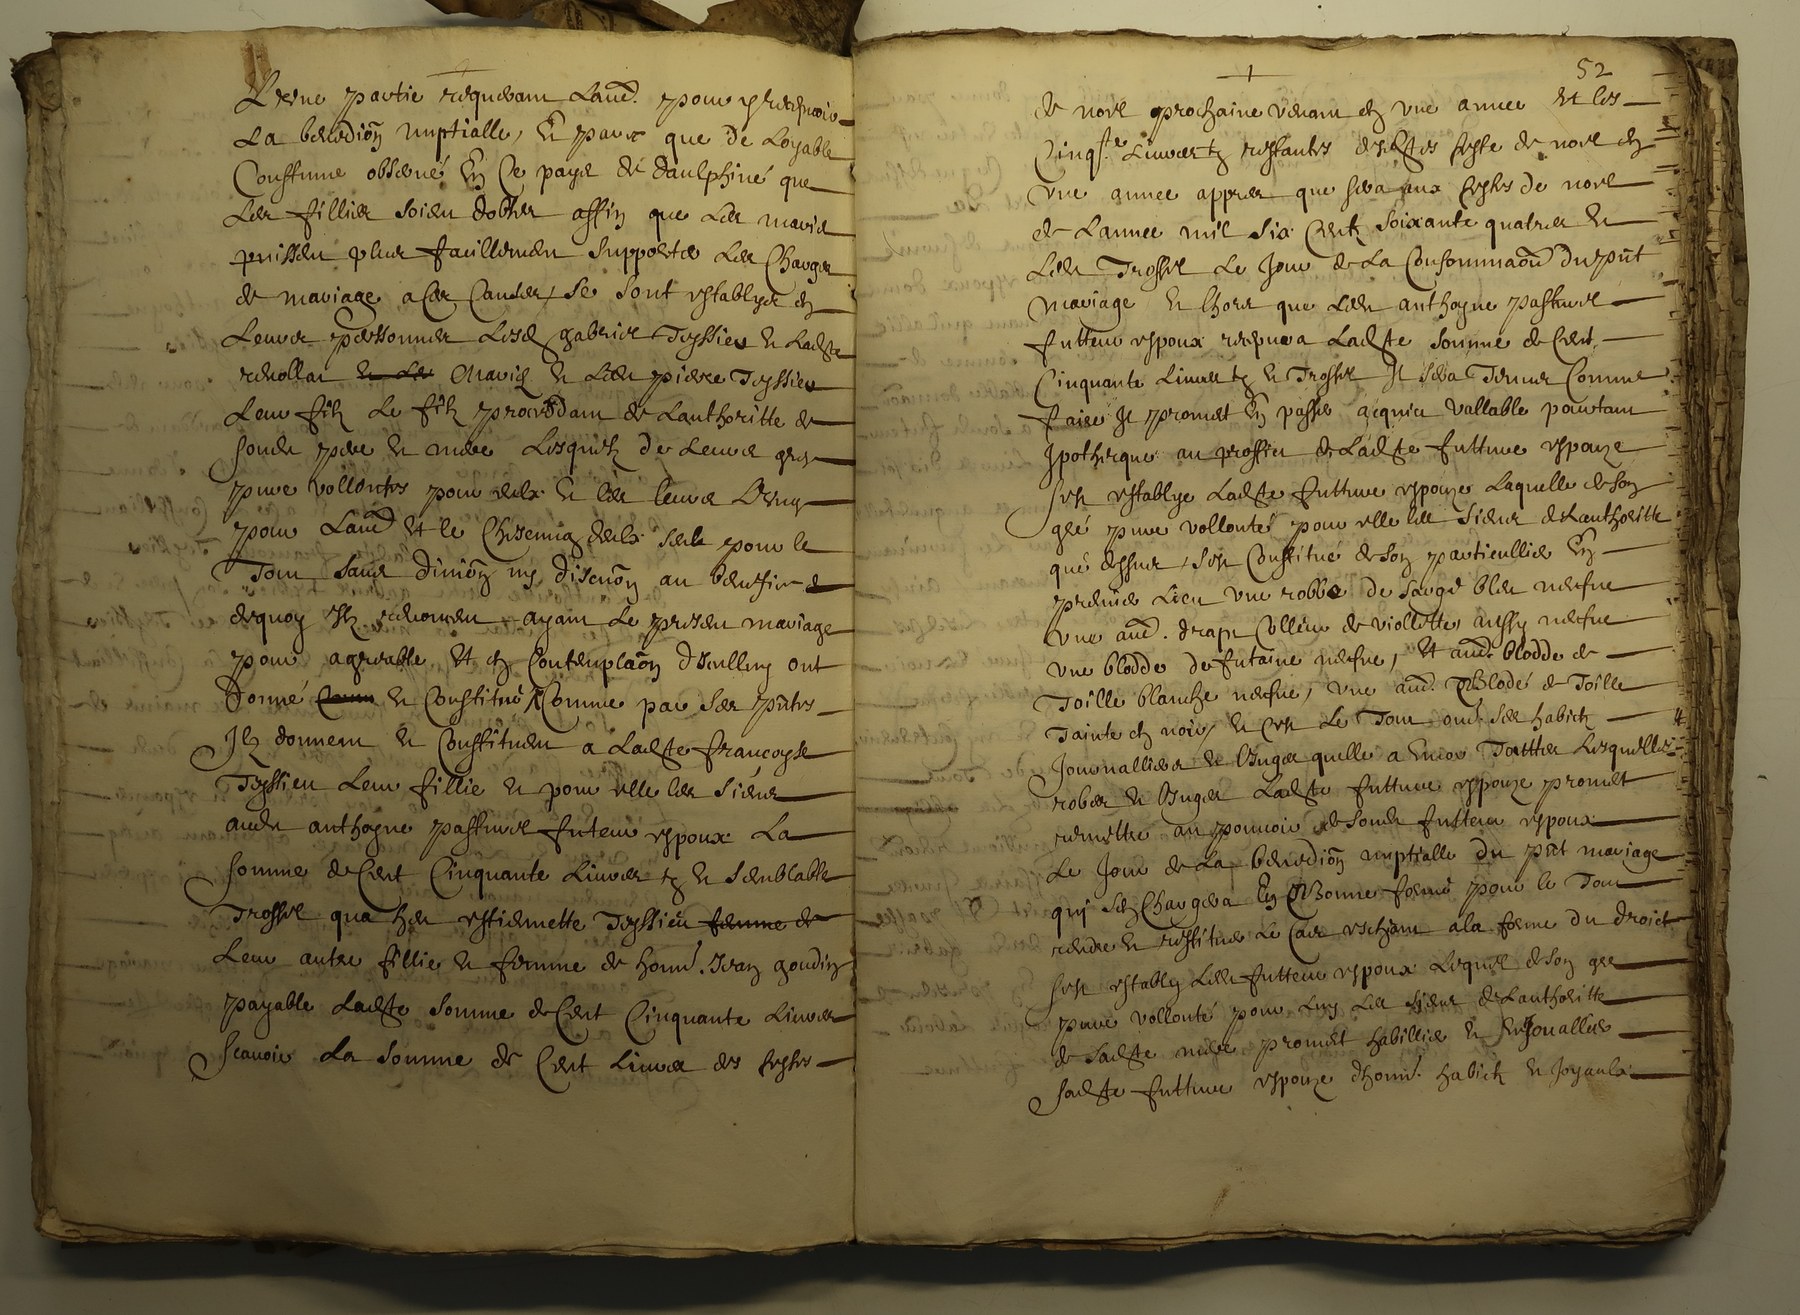 L'une partie requerant l'aud. pour y recepvoir
La benedion nuptialle, Et parce que de Loyable
Coustume observé En Ce pays de daulphiné que
Les fillies soien dottes affin que Les maris
puissen plus faicillemen supporter Les Charges
de mariage a Ces Causes, se sont establys en
Leurs personnes Lesd gabriel Teyssieu et Ladte
revollat et les maries et Led pierre Teyssieu
Leur filz Le filz proceddant de Lauthoritte de
sond pere et mere Lesquelz de Leurs gres
pure vollontes pour eulx et les leurs L'ung
pour Laud et le Chescung deulx seul pour le
Tout sans division ny discution au beneffice
dequoy Ilz renoncen ayant Le presen mariage
pour agreable et en Contemplaon dicelluy ont
donné et Constitué Comme par Ses pntes
Ilz donnent et Constituen a Ladte francoyse
Teyssieu Leur fillie et pour elle les siens
aud anthoyne pasturel futeur espoux La
somme de Cent Cinquante Livres tz et semblable
Trossel qua heu estiennette Teyssieu femme de
Leur autre fillie et femme de honn. Jean goudin
payable Ladte somme de Cent Cinquante Livres
scavoir La somme de Cent Livres des festes
52
de noel prochaine venant en une annee et les
Cinqte Livres tz restantes desdtes feste de noel en
une annee appres que sera aux festes de noel
de Lannee mil six Centz soixante quatre et
Led Trossel Le Jour de La Consommaon du pnt
mariage et lhors que Led anthoyne pasturel
futteur espoux recepvra Ladte somme de Cent
Cinquante Livres tz et Trossel Il sera Tenu Comme
faire Il promet En passer acquit vallable portant
Ipotheque au proffict de Ladte futture espouze
sest establye Ladte futture espouze Laquelle de son
gré pure vollonté pour elle les siens de Lauthoritte
que dessus, sest Constitué de son particullier En
premier Lieu une robbe de sarge bleu nefve
une aud. drapt Culleur de viollette aussy nefve
une blodde de futaine nefve, Et aud. blodde de
Toille blanche nefve, une aud. Blode de Toille
Tainte en noir, et Cest Le Tout oud. ses habitz
Journalliers et linges quelle a Lesquelles
robes et linges Ladte futture espouze promet
remettre au pouvoir de sond futteur espoux
Le Jour de La benedion nuptialle du pnt mariage
qui sen Chargera En Bonne forme pour le Tout
rendre et restituer Le Cas escheant a la forme du droict
sest estably Led futteur espoux Lequel de son gre
pure vollonté pour Luy Les siens de Lauthoritte
de sadte mere promet habillier et Enjouallier
sadte futture espouze dhonn. habitz et Joyaulx